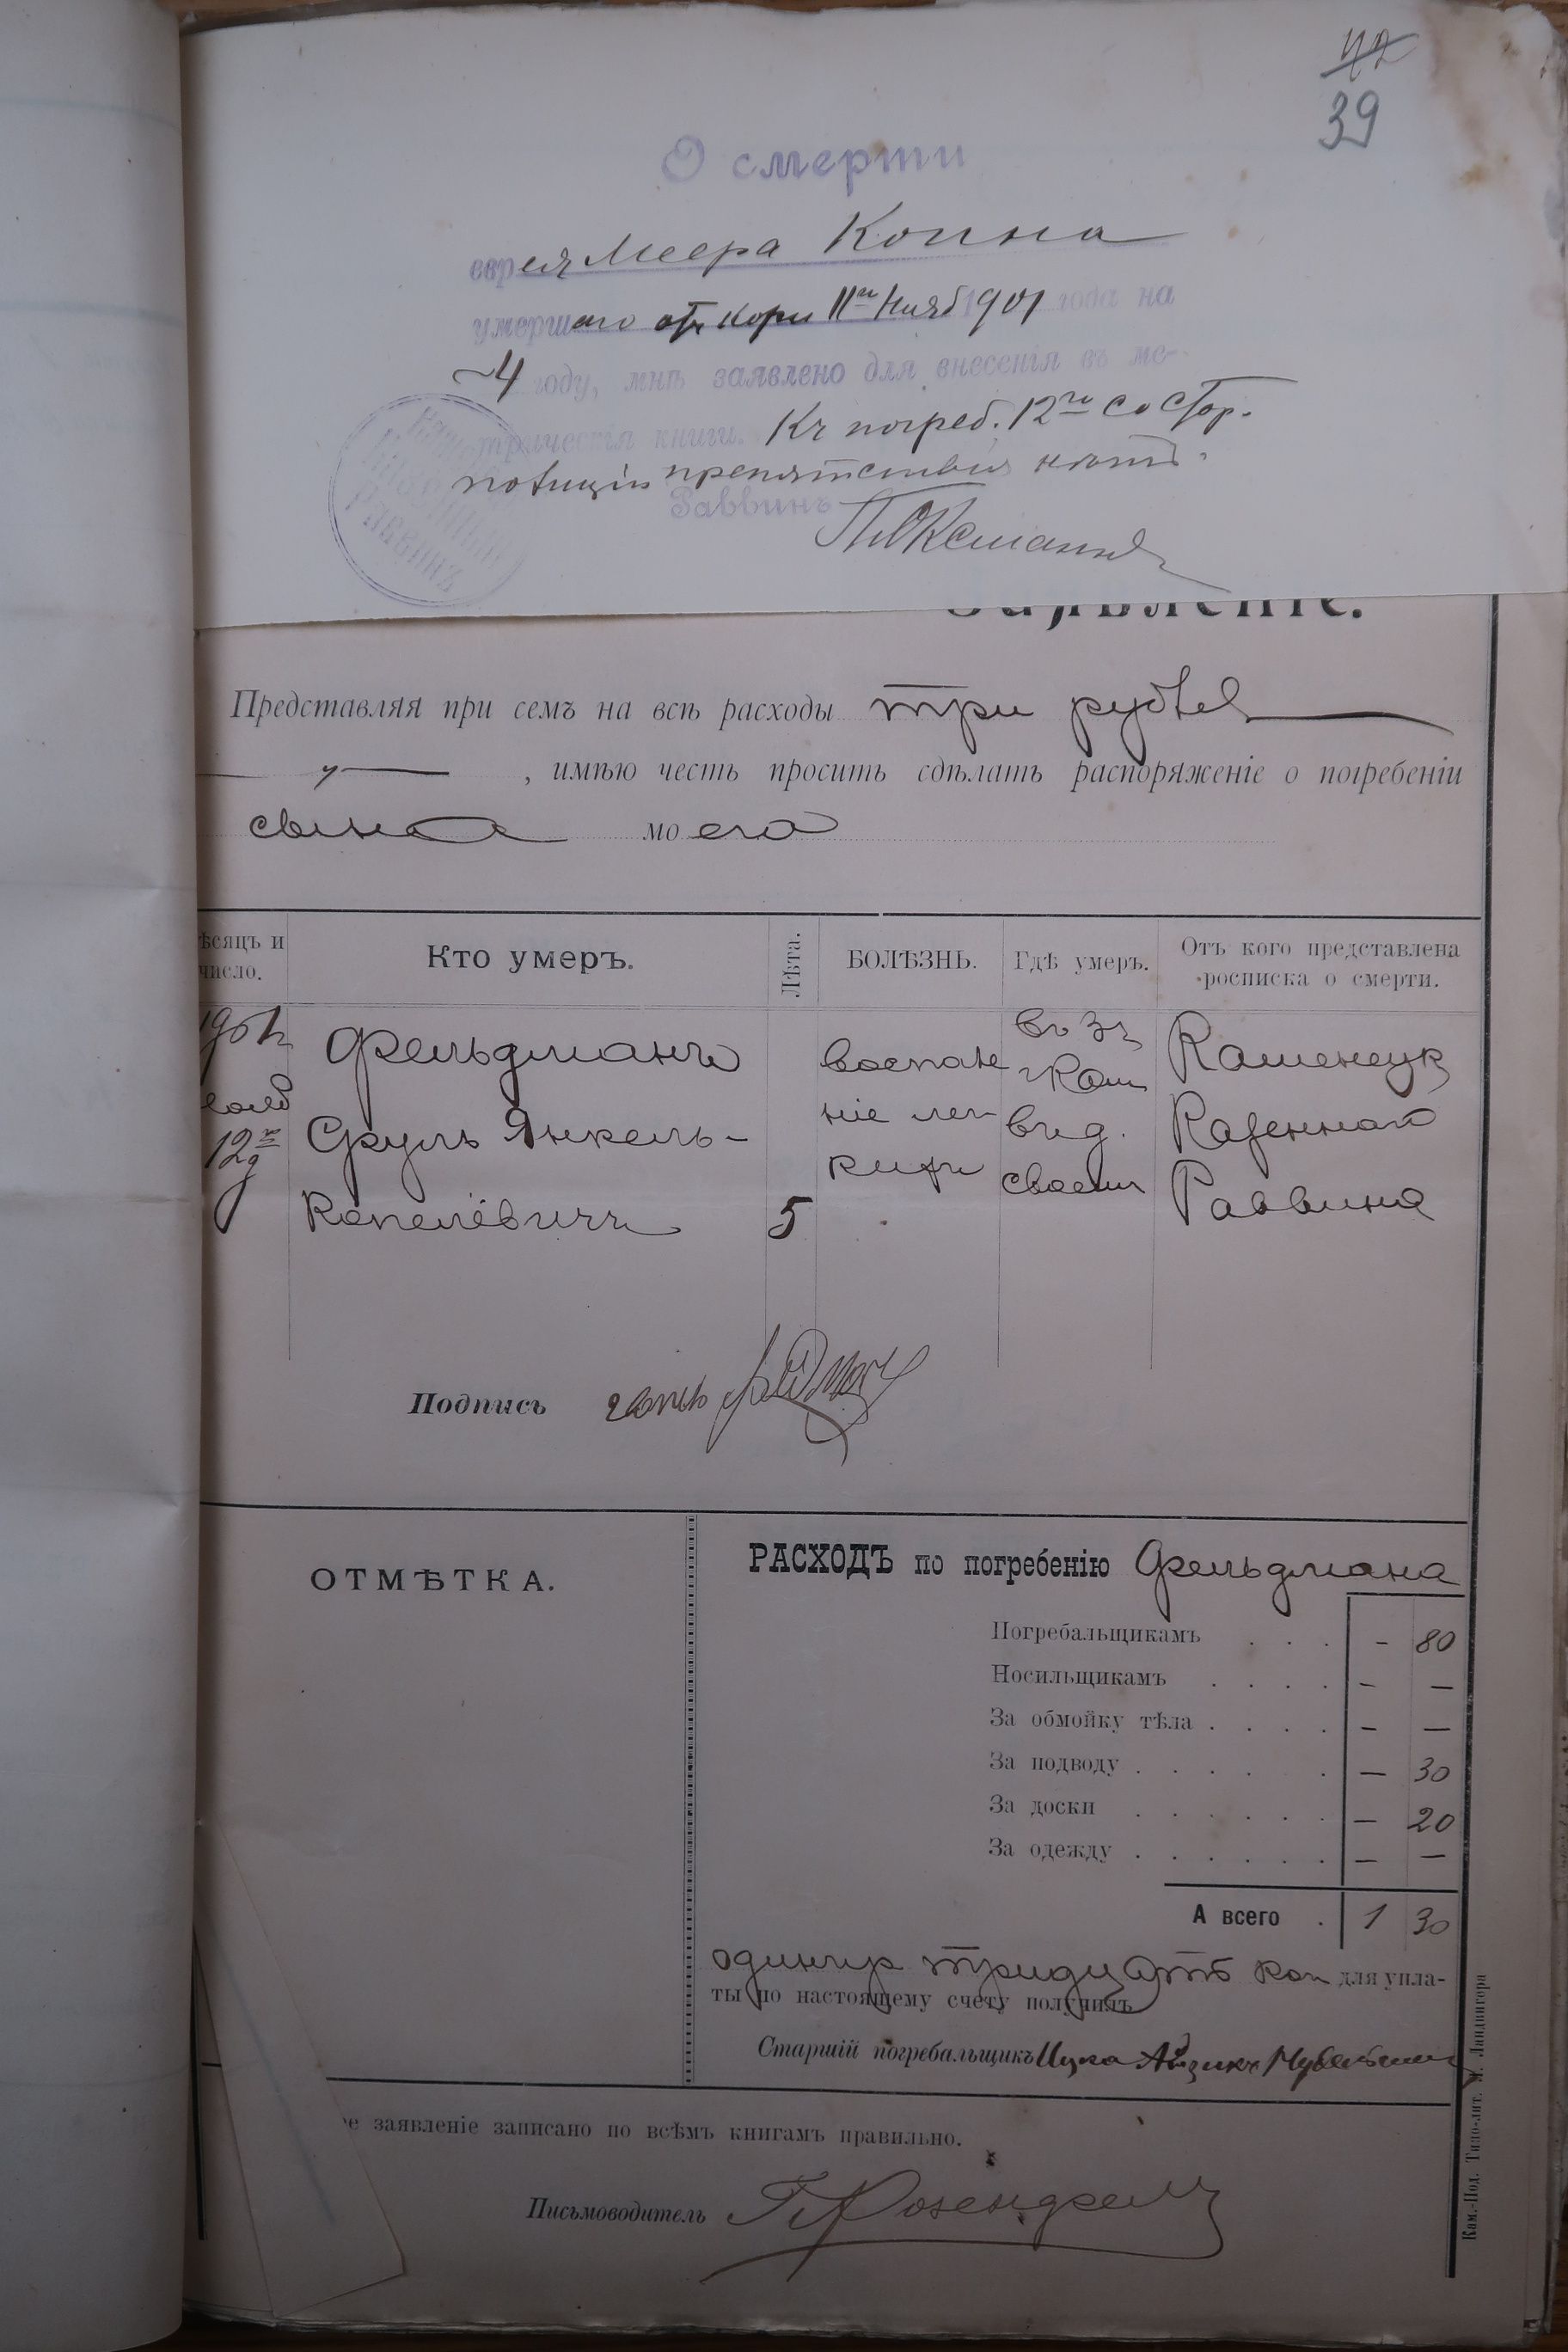 42
39
О смерти
еврея Меера Копна
умершаго отъ кори 11го Нояб 1901 года на
4 году, мнѣ заявлено для внесенія въ ме-
трическія книги. Къ погреб. 12го со стор.
полиціи препятствия нѣтъ.
Раввинъ
Заявленіе.
Представляя при семъ на всѣ расходы три рублей
, имѣю честь просить сдѣлать распоряженіе о погребеніи
сына моего
ѣсяцъ и число. Кто умеръ. Лѣта. БОЛѢЗНЬ. Гдѣ умеръ. Отъ кого представлена росписка о смерти.
1901 Фельдманъ воспале въ Каменецк
12 Сруль Янкель- ніе лег въ д. Казеннаго
Копелёвичъ 5 кихъ своемъ Раввина
Подпись
ОТМѢТКА.
РАСХОДЪ по погребенію Фельдмана
Погребальщикамъ . . . - 80
Носильщикамъ . . . . - —
За обмойку тѣла . . . . - —
За подводу . . . . . — 30
За доски . . . . . . — 20
За одежду . . . . . . — —
А всего . 1 30
одинъ р тридцать коп для упла-
ты по настоящему счету получилъ
Старшій погребальщикъ Айзикъ
е заявленіе записано по всѣмъ книгамъ правильно.
Письмоводитель
Кам.-Под. Типо-лит. М. Ландвигера